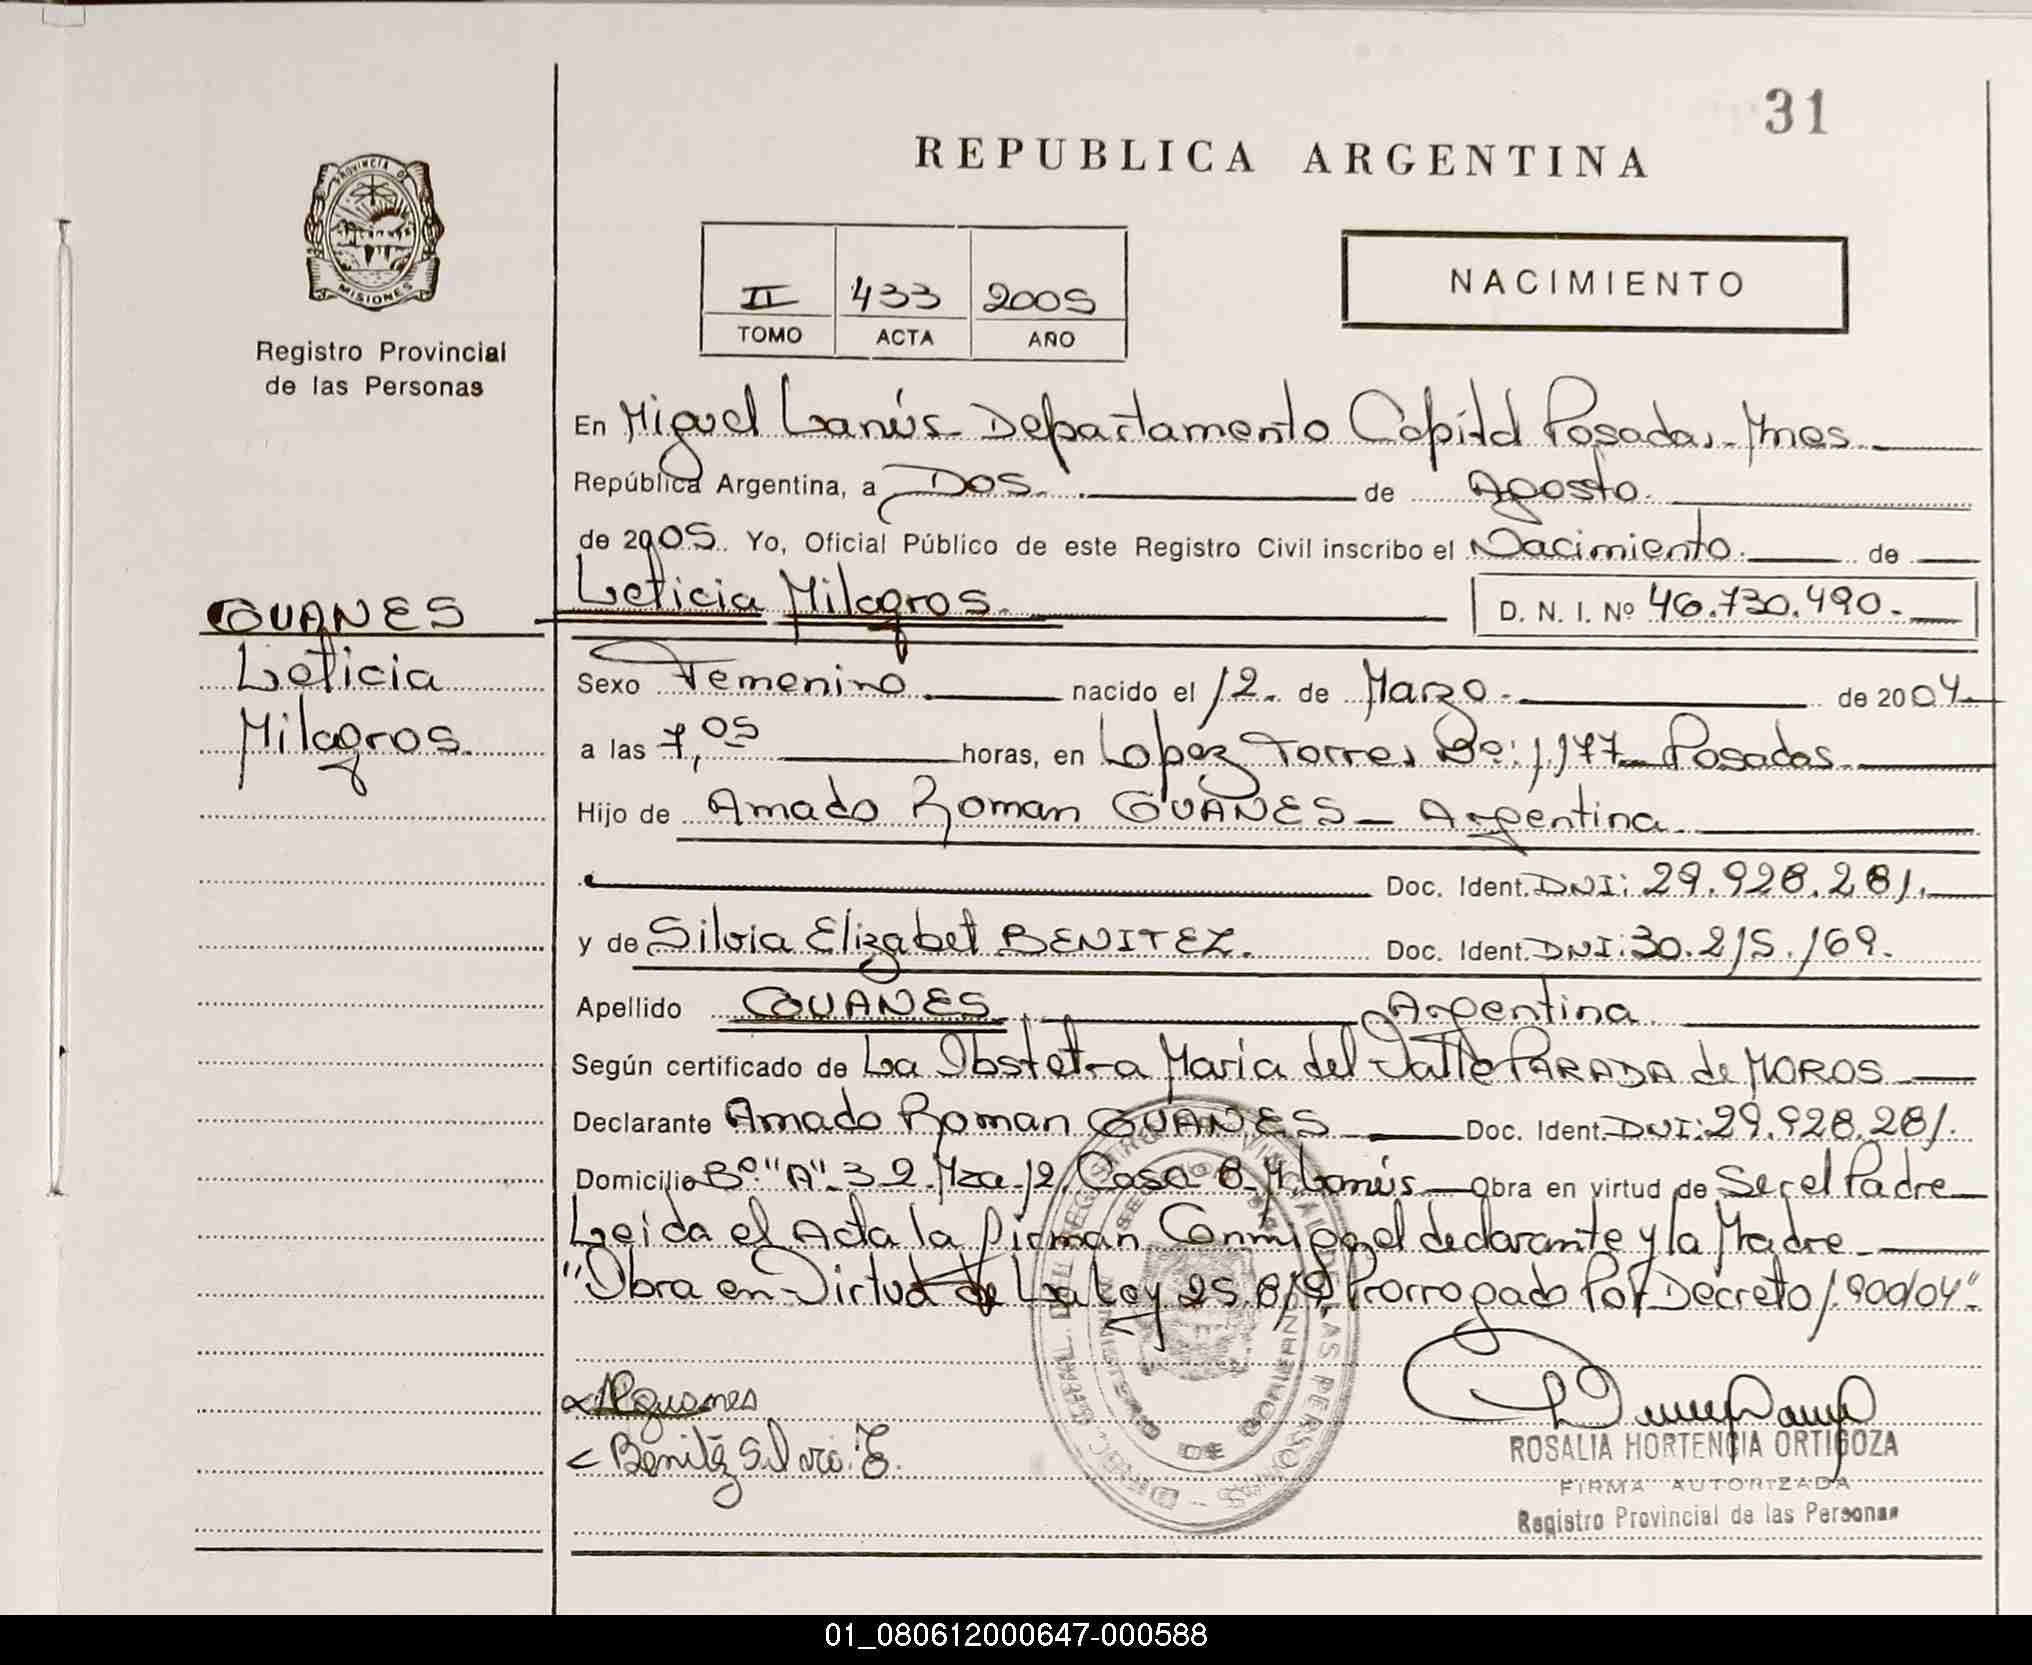 31
REPUBLICA ARGENTINA
PROVINCIA DE
MISIONES
Registro Provincial
de las Personas
II 433 2005
TOMO ACTA AÑO
NACIMIENTO
En Miguel Lanús Departamento Capital Posadas Mnes
República Argentina, a Dos de Agosto
de 2005 Yo, Oficial Público de este Registro Civil inscribo el Nacimiento de
GUANES
Leticia
Milagros.
Leticia Milagros. D. N. I. Nº 46.730.490.
Sexo Femenino nacido el 12 de Marzo de 2004
a las 7,05 horas, en Lopez Torres Bo: 1.177 Posadas
Hijo de Amado Roman GUANES Argentina
Doc. Ident. DNI: 29.928.281.
y de Silvia Elizabet BENITEZ. Doc. Ident. DNI: 30.215.169.
Apellido GUANES Argentina
Según certificado de La Obstetra Maria del Valle PARADA de MOROS
Declarante Amado Roman GUANES Doc. Ident. DNI: 29.928.281.
Domicilio Bº "A" 32 Mza 12 Casa 8 M Lanús Obra en virtud de Ser el Padre
Leida el Acta la firman Conmigo el declarante y la Madre
"Obra en Virtud de La Ley 25.819 Prorrogado Por Decreto 1.900/04"
Benitez Silvia E.
ROSALIA HORTENCIA ORTIGOZA
FIRMA AUTORIZADA
Registro Provincial de las Personas
01_080612000647-000588